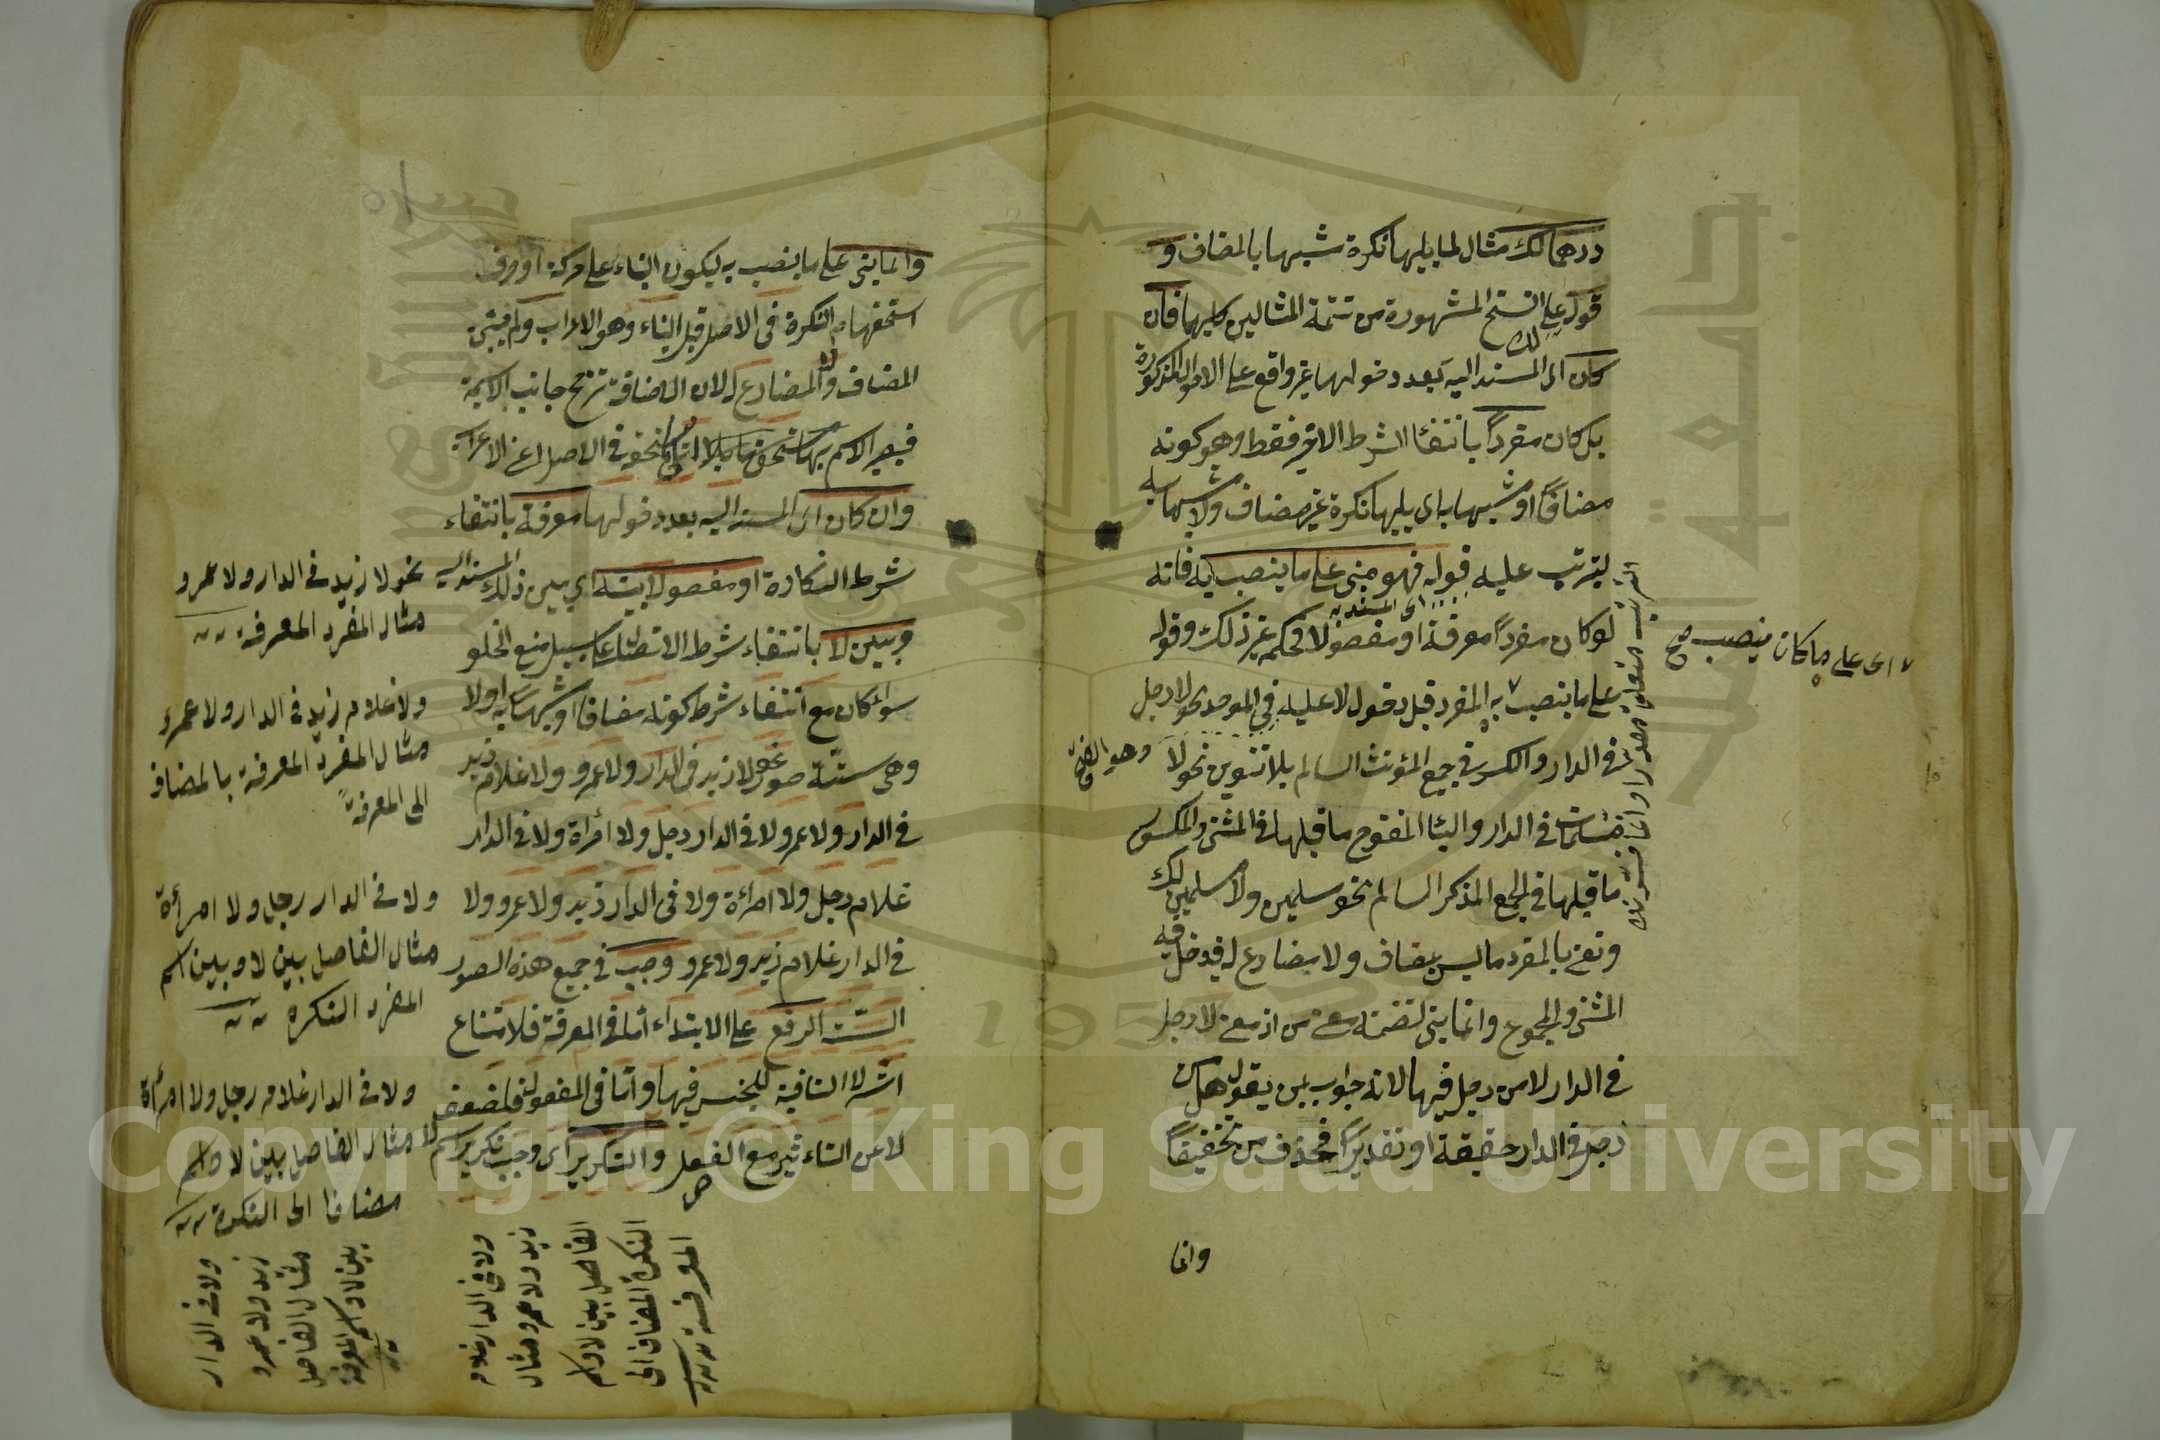 درهما لك مثال لما يليها نكرة شبيها بالمضاف و
قوله على الفتح المشهورة من تتمة المثالين كليهما فان
كان اى المسند اليه بعد دخولها غير واقع على الاحوال المذكورة
بل كان مفردا بانتفاء الشرط الاخير فقط وهو كونه
مضافا او شبيها به اى يليها نكرة غير مضاف ولا شبيها به
ليترتب عليه قوله فهو مبنى على ما ينصب به فانه
اى المسند به
لو كان مفردا معرفة او مفصولا فحكمه غير ذلك وقوله
على ما ينصب به المفرد قبل دخول لا عليه فى الموحد نحو لا رجل
فى الدار والكسر فى جمع المؤنث السالم بلا تنوين نحو لا
وهو الفتح
مسلمات فى الدار والياء المفتوح ما قبلها فى المثنى والمكسور
ما قبلها فى الجمع المذكر السالم نحو مسلمين ولا مسلمين لك
ونعنى بالمفرد ما ليس بمضاف ولا مضارع له فيدخل فيه
المثنى والمجموع وانما بنى لتضمنه معنى من اذ معنى لا رجل
فى الدار لا من رجل فيها لانه جواب لمن يقول هل من
رجل فى الدار حقيقة او تقديرا فحذف من تخفيفا
وانما
اى على ما كان ينصب صح
وانما بنى على ما ينصب به ليكون البناء على حركة او حرف
استحقهما النكرة فى الاصل قبل البناء وهو الاعراب ولم يبن
المضاف ولا المضارع له لان الاضافة ترجح جانب الاسمية
فيصير الاسم بها الى ما يستحقه فى الاصل اعنى الاعراب
وان كان اى المسند اليه بعد دخولها معرفة بانتفاء
شرط النكارة او مفصولا بينه اى بين ذلك المسند اليه
وبين لا بانتفاء شرط الاتصال على سبيل منع الخلو
سواء كان مع انتفاء شرط كونه مضافا او شبيها به اولا
وهى ستة صور نحو لا زيد فى الدار ولا عمرو ولا غلام زيد
فى الدار ولا عمرو لا فى الدار رجل ولا امرأة ولا فى الدار
غلام رجل ولا امرأة ولا فى الدار زيد ولا عمرو ولا
فى الدار غلام زيد ولا عمرو وجب فى جميع هذه الصور
الست الرفع على الابتداء أما فى المعرفة فلامتناع
اثر لا النافية للجنس فيها واما فى المفصول فلضعف
لا عن التاءثير مع الفصل والتكرير اى وجب تكرير اسم لا
نحو لا زيد فى الدار ولا عمرو
مثال المفرد المعرفة
ولا غلام زيد فى الدار ولا عمرو
مثال المفرد المعرفة بالمضاف
الى المعرفة
ولا فى الدار رجل ولا امرأة
مثال الفاصل بين لا وبين اسم
المفرد النكرة
ولا فى الدار غلام رجل ولا امرأة
مثال الفاصل بين لا واسم
مضافا الى النكرة
ولا فى الدار
زيد ولا عمرو
مثال الفاصل
بين لا واسم المعرفة
ولا فى الدار غلام
زيد ولا عمرو مثال
الفاصل بين لا واسم
النكرة المضاف الى
المعرفة
Copyright © King Saud University
1957